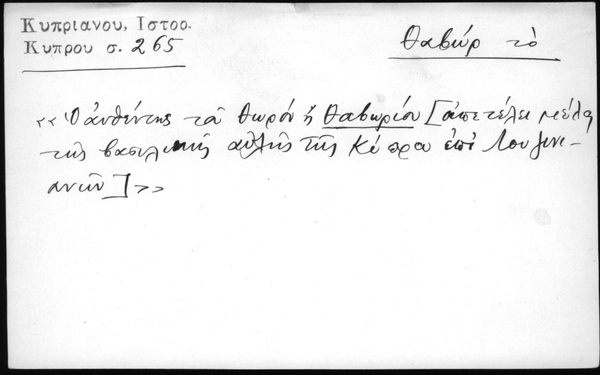 Κυπριανου, Ιστορ.
Κυπρου σ. 265
Θαβώρ τὸ
<<Ὁ αὐθέντης τοῦ Θωρόν ἤ Θαβωρίου [ἀπετέλει μέλος
τῆς βασιλικῆς αὐλῆς τῆς Κύπρου ἐπί Λουζινι-
ανῶν]>>